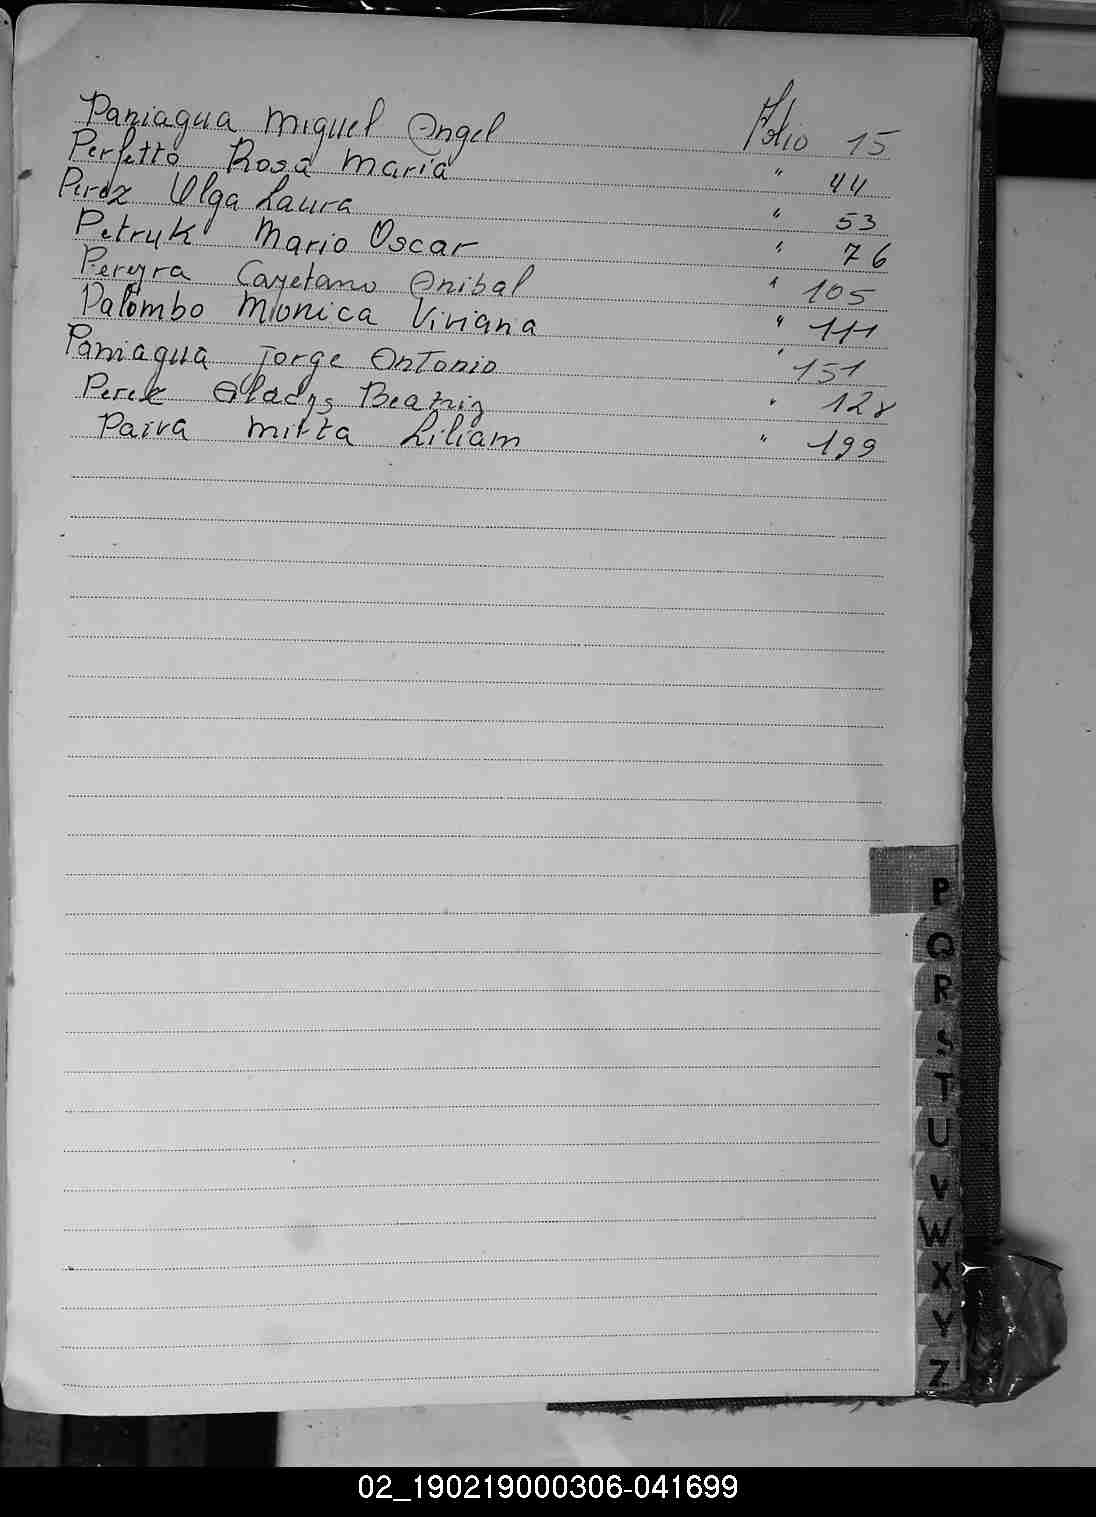 Paniagua Miguel Angel Folio 15
Perfetto Rosa Maria " 44
Perez Olga Laura " 53
Petruk Mario Oscar " 76
Pereyra Cayetano Anibal " 105
Palombo Monica Viviana " 111
Paniagua Jorge Antonio " 151
Perez Gladys Beatriz " 128
Paiva Mirta Liliam " 199
P
Q
R
S
T
U
V
W
X
Y
Z
02_190219000306-041699